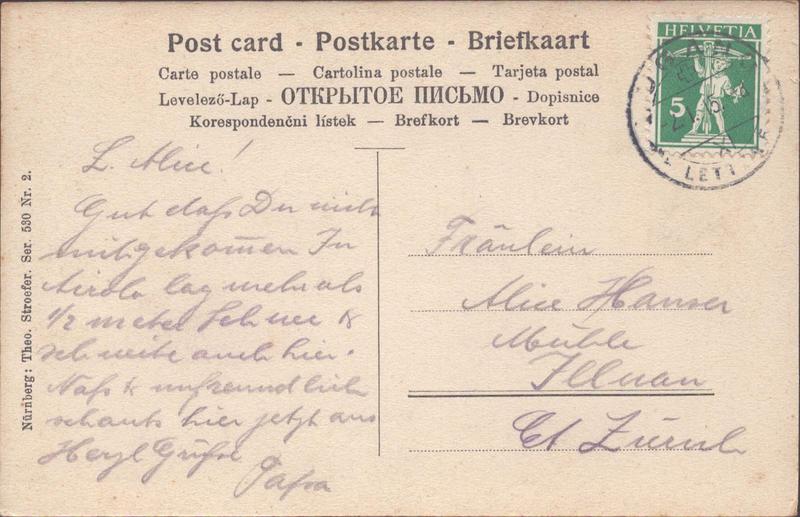 Post card - Postkarte - Briefkaart
Carte postale — Cartolina postale — Tarjeta postal
Levelező-Lap - ОТКРЫТОЕ ПИСЬМО - Dopisnice
Korespondenční lístek — Brefkort — Brevkort
HELVETIA
5
LETT
Nürnberg: Theo. Stroefer. Ser. 530 Nr. 2.
L. Alice!
Gut daß Du nicht
mitgekom̅en In
Airolo lag mehr als
1/2 meter Schnee &
schneite auch hier.
Naß & unfreundlich
schauts hier jetzt aus
Herzl Grüße
Papa
Fräulein
Alice Hanser
Mühle
Illnau
Ct Zürich